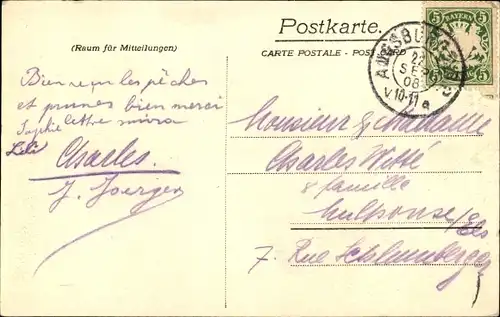 Postkarte.
(Raum für Mitteilungen)
CARTE POSTALE - POST CARD
5 BAYERN 5
AUGSBURG
22
SEP
08
V 10-11 a
Bien reçu les pêches
et prunes bien merci
Sophie lettre suivra
Lili
Charles.
J. Joerger
Monsieur & Madame
Charles Witté
& famille
Mulhouse/Els
7. Rue Schlumberger